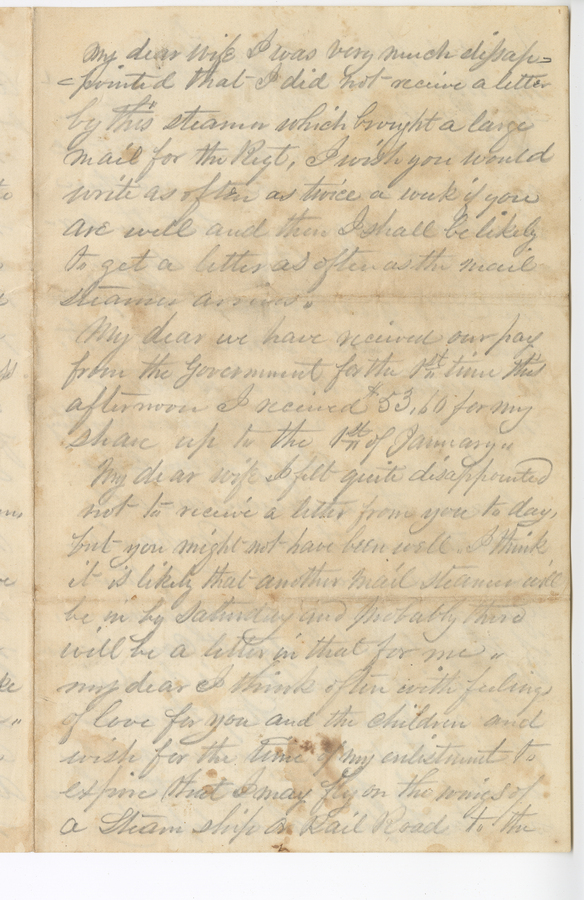 My dear wife I was very much disap=
=pointed that I did not receive a letter
by this steamer which brought a large
mail for the Regt, I wish you would
write as often as twice a week if you
are well and then I shall be likely
to get a letter as often as the mail
steamer arrives.
My dear we have received our pay
from the Government for the 1st time this
afternoon I received $53,60 for my
share up to the 1st of January.
My dear wife I felt quite disappointed
not to receive a letter from you to day,
but you might not have been well. I think
it is likely that another mail steamer will
be in by Saturday and probably there
will be a letter in that for me
my dear I think often with feelings
of love for you and the children and
wish for the time of my enlistment to
expire that I may fly on the wings of
a Steam ship or Rail Road to the